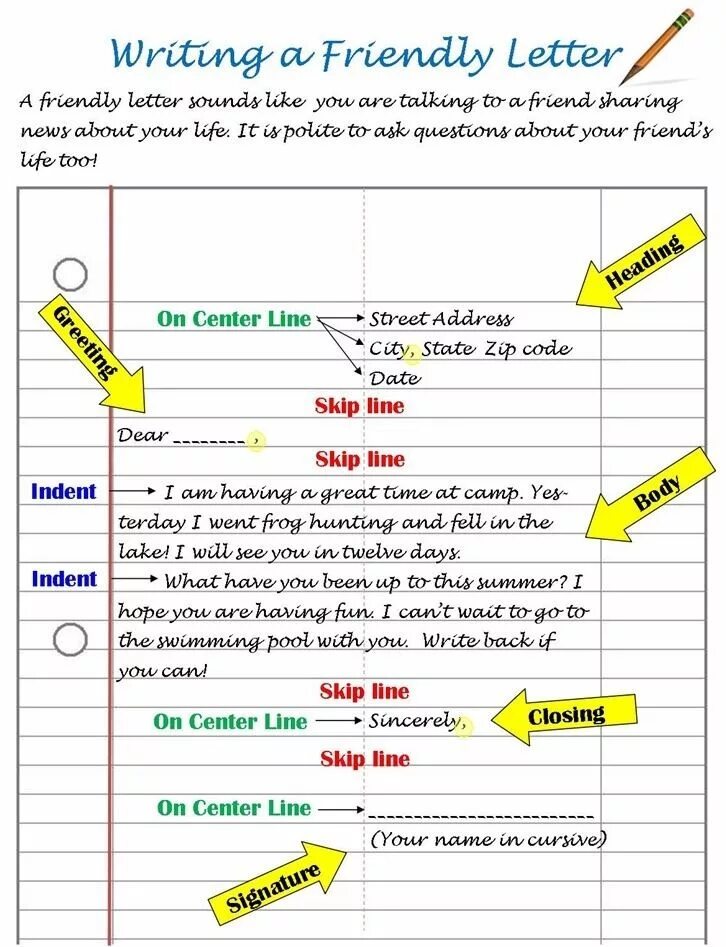 Writing a Friendly Letter
A friendly letter sounds like you are talking to a friend sharing
news about your life. It is polite to ask questions about your friend's
life too!
Heading
Greeting
On Center Line Street Address
City, State Zip code
Date
Skip line
Dear ________ ,
Skip line
Body
Indent I am having a great time at camp. Yes-
terday I went frog hunting and fell in the
lake! I will see you in twelve days.
Indent What have you been up to this summer? I
hope you are having fun. I can't wait to go to
the swimming pool with you. Write back if
you can!
Skip line
On Center Line Sincerely, Closing
Skip line
On Center Line _________________________
(Your name in cursive)
Signature